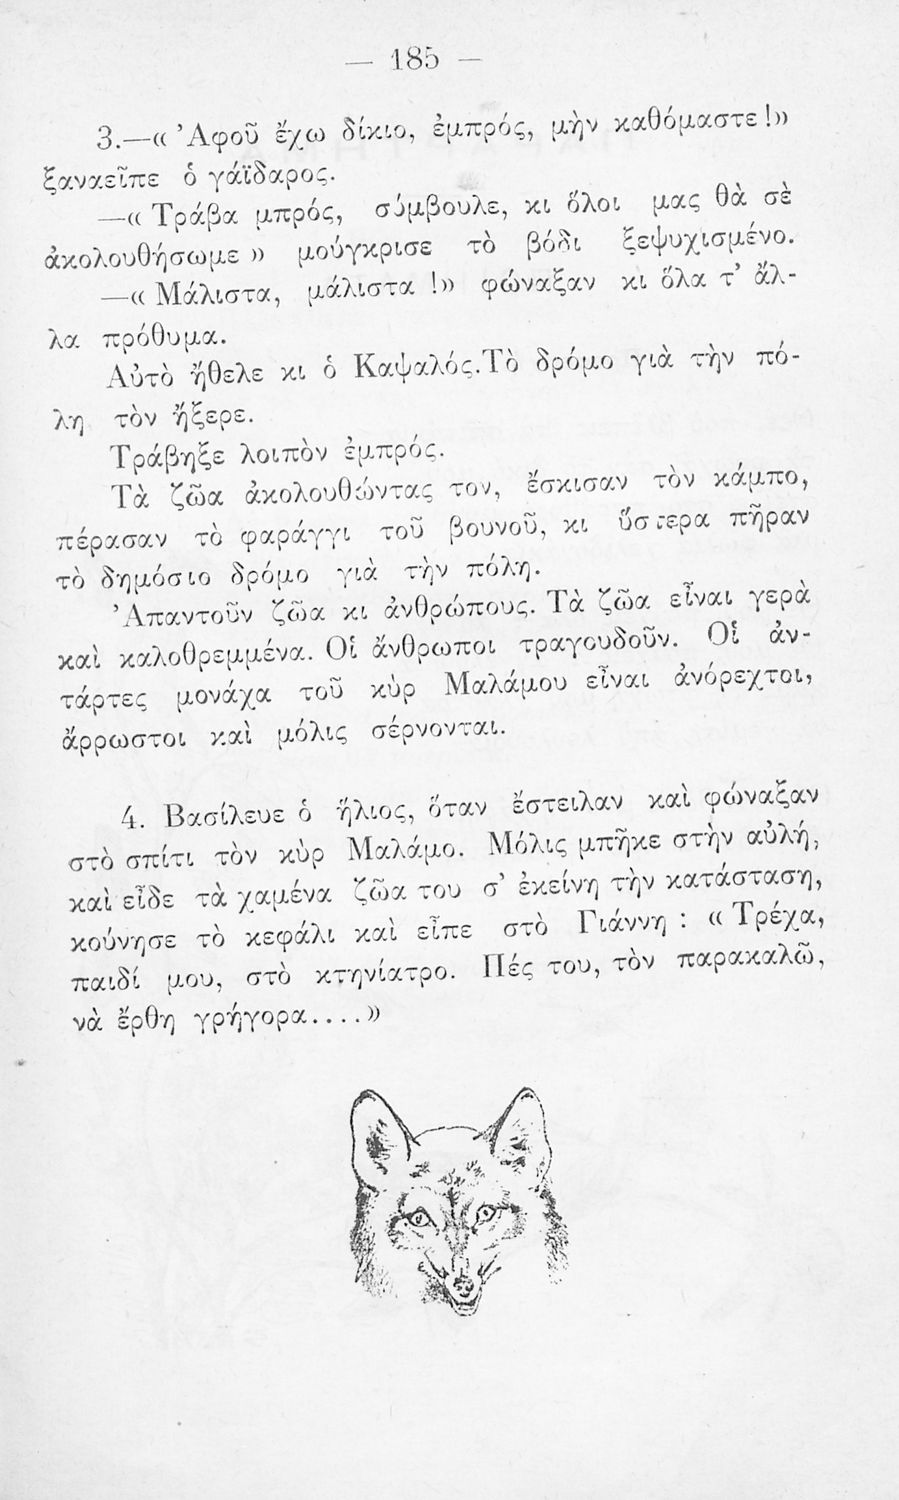 — 185 —
3.—« Ἀφοῦ ἔχω δίκιο, ἐμπρός, μὴν καθόμαστε!»
ξαναεῖπε ὁ γάϊδαρος.
—« Τράβα μπρός, σύμβουλε, κι ὅλοι μας θὰ σὲ
ἀκολουθήσωμε » μούγκρισε τὸ βόδι ξεψυχισμένο.
—« Μάλιστα, μάλιστα !» φώναξαν κι ὅλα τ' ἄλ-
λα πρόθυμα.
Αὐτὸ ἤθελε κι ὁ Καψαλός. Τὸ δρόμο γιὰ τὴν πό-
λη τὸν ἤξερε.
Τράβηξε λοιπὸν ἐμπρός.
Τὰ ζῶα ἀκολουθώντας τον, ἔσκισαν τὸν κάμπο,
πέρασαν τὸ φαράγγι τοῦ βουνοῦ, κι ὕστερα πῆραν
τὸ δημόσιο δρόμο γιὰ τὴν πόλη.
Ἀπαντοῦν ζῶα κι ἀνθρώπους. Τὰ ζῶα εἶναι γερὰ
καὶ καλοθρεμμένα. Οἱ ἄνθρωποι τραγουδοῦν. Οἱ ἀν-
τάρτες μονάχα τοῦ κὺρ Μαλάμου εἶναι ἀνόρεχτοι,
ἄρρωστοι καὶ μόλις σέρνονται.
4. Βασίλευε ὁ ἥλιος, ὅταν ἔστειλαν καὶ φώναξαν
στὸ σπίτι τὸν κὺρ Μαλάμο. Μόλις μπῆκε στὴν αὐλή,
καὶ εἶδε τὰ χαμένα ζῶα του σ' ἐκείνη τὴν κατάσταση,
κούνησε τὸ κεφάλι καὶ εἶπε στὸ Γιάννη : « Τρέχα,
παιδί μου, στὸ κτηνίατρο. Πές του, τὸν παρακαλῶ,
νὰ ἔρθη γρήγορα....»